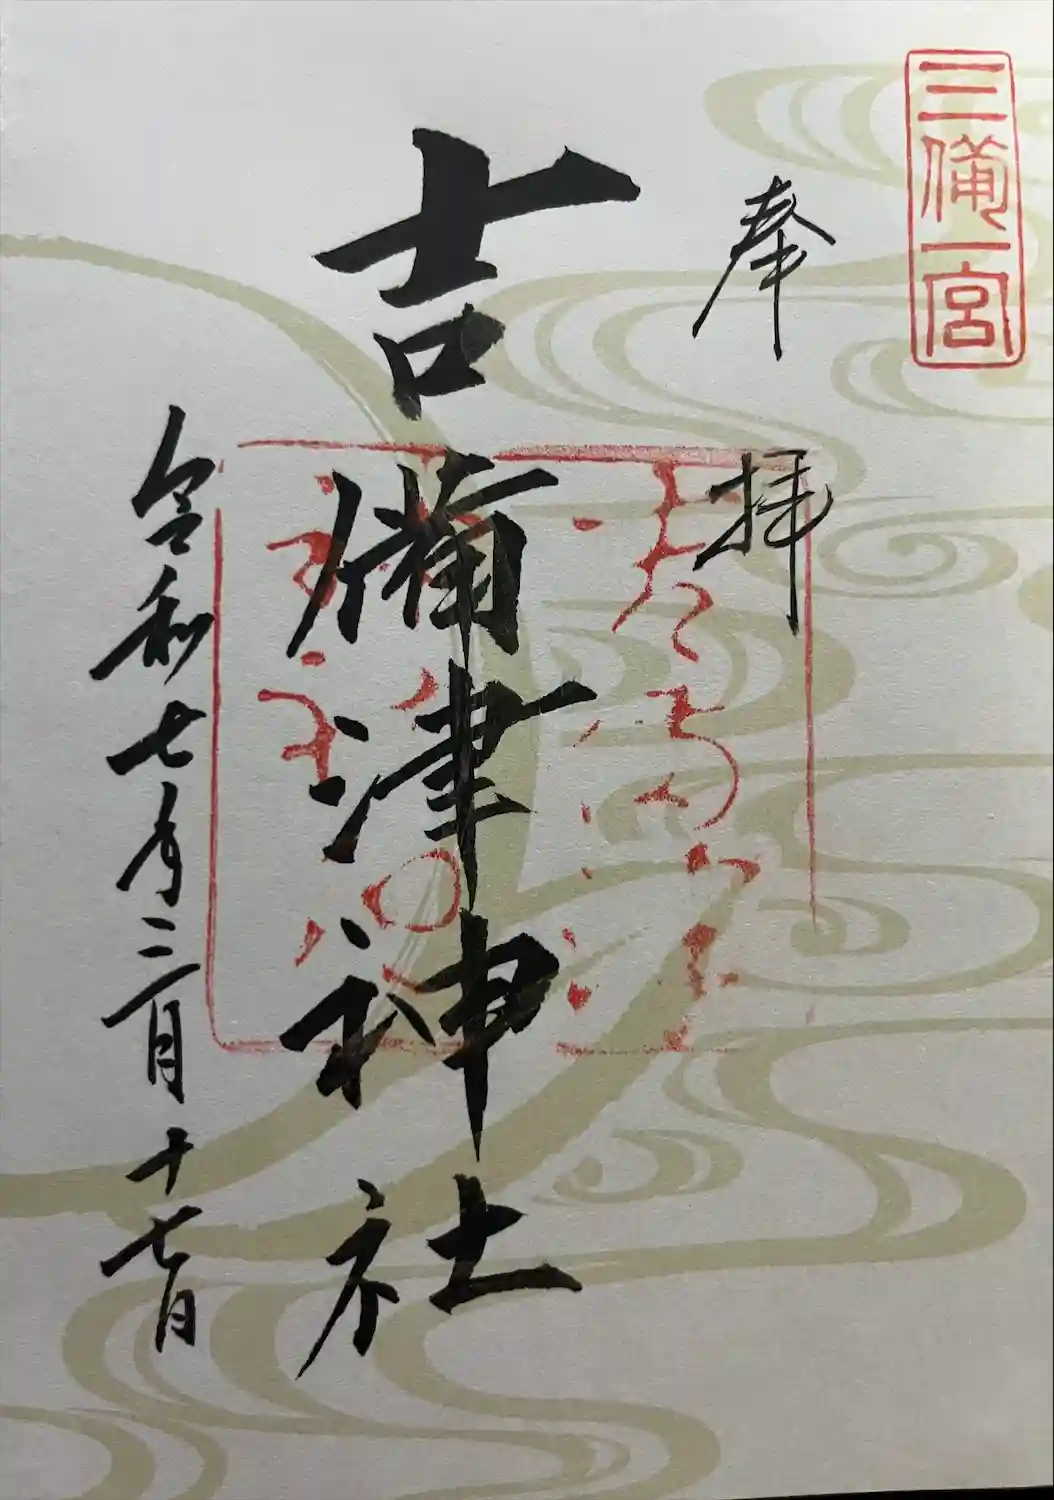 三備一宮
奉拝
吉備津神社
令和七年三月十七日